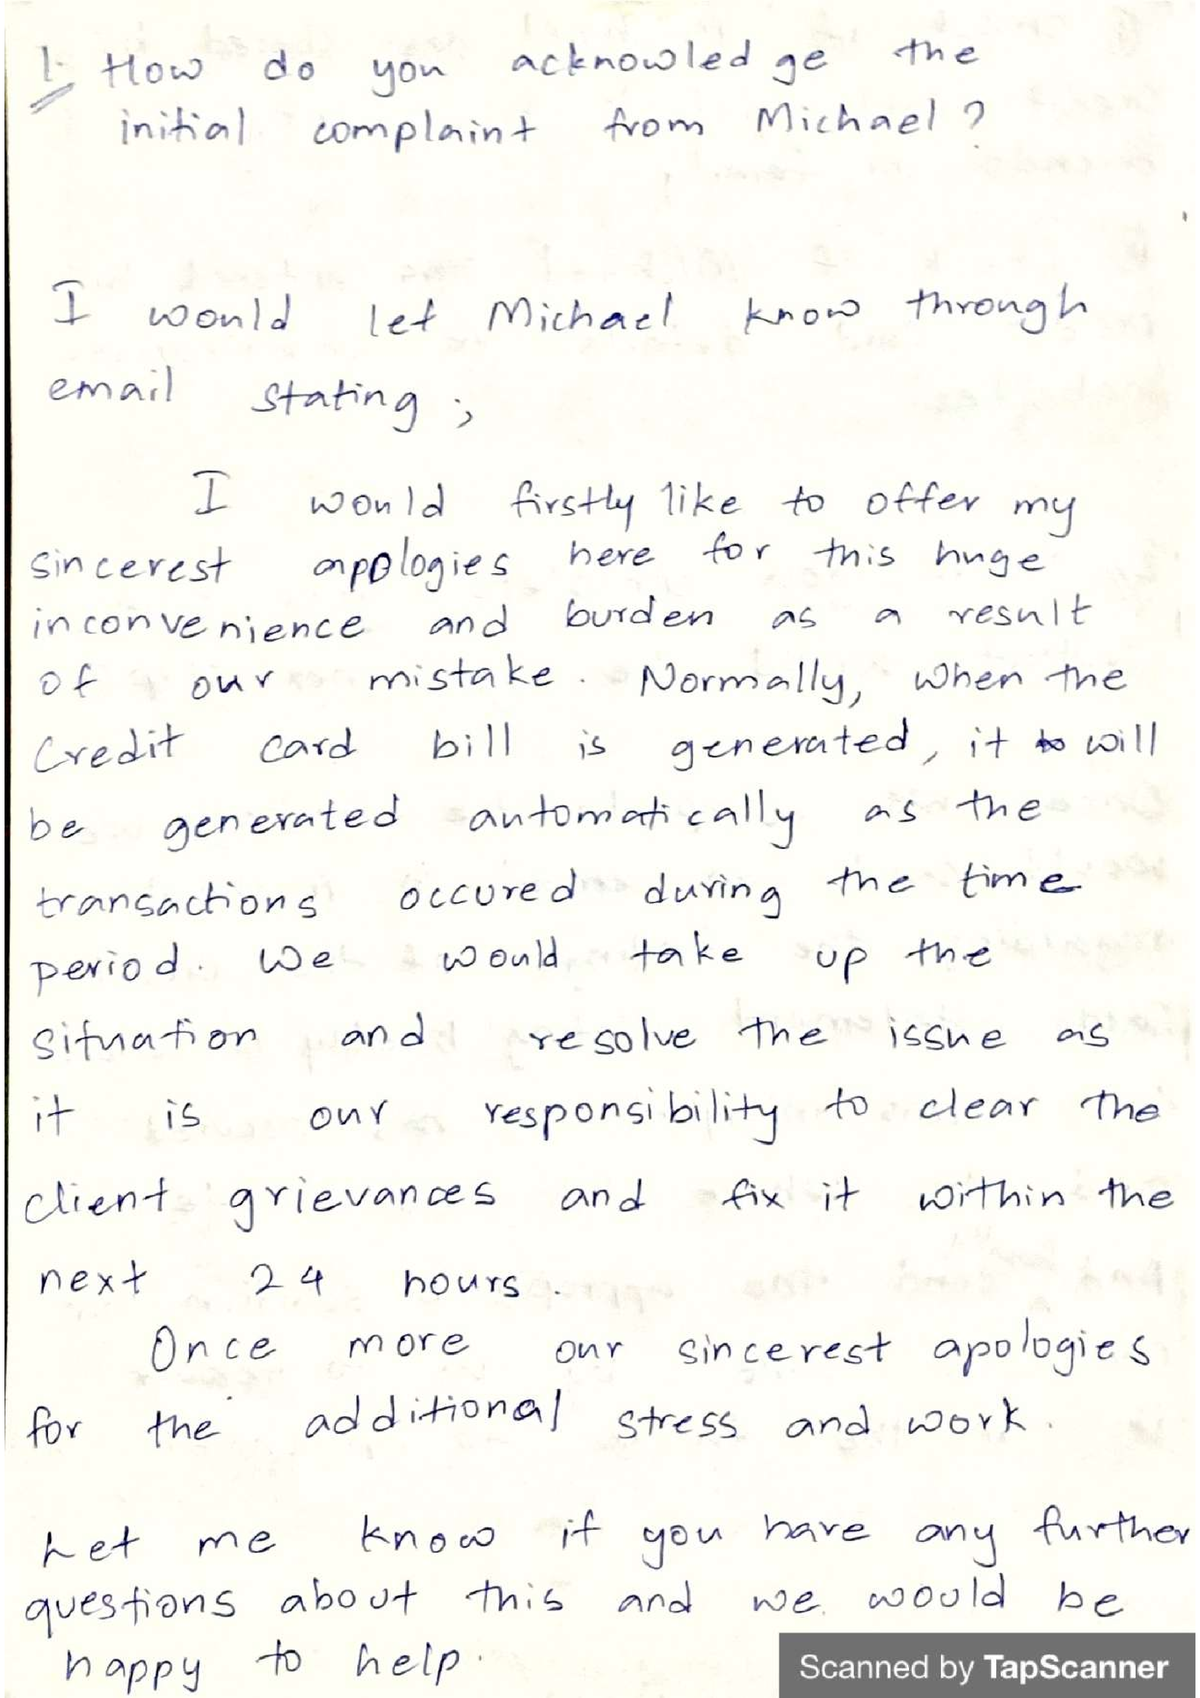 1. How do you acknowledge the
initial complaint from Michael ?
I would let Michael know through
email stating ;
I would firstly like to offer my
sincerest apologies here for this huge
inconvenience and burden as a result
of our mistake. Normally, when the
Credit card bill is generated, it will
be generated automatically as the
transactions occured during the time
period. We would take up the
situation and resolve the issue as
it is our responsibility to clear the
client grievances and fix it within the
next 24 hours.
Once more our sincerest apologies
for the additional stress and work.
Let me know if you have any further
questions about this and we would be
happy to help.
Scanned by TapScanner